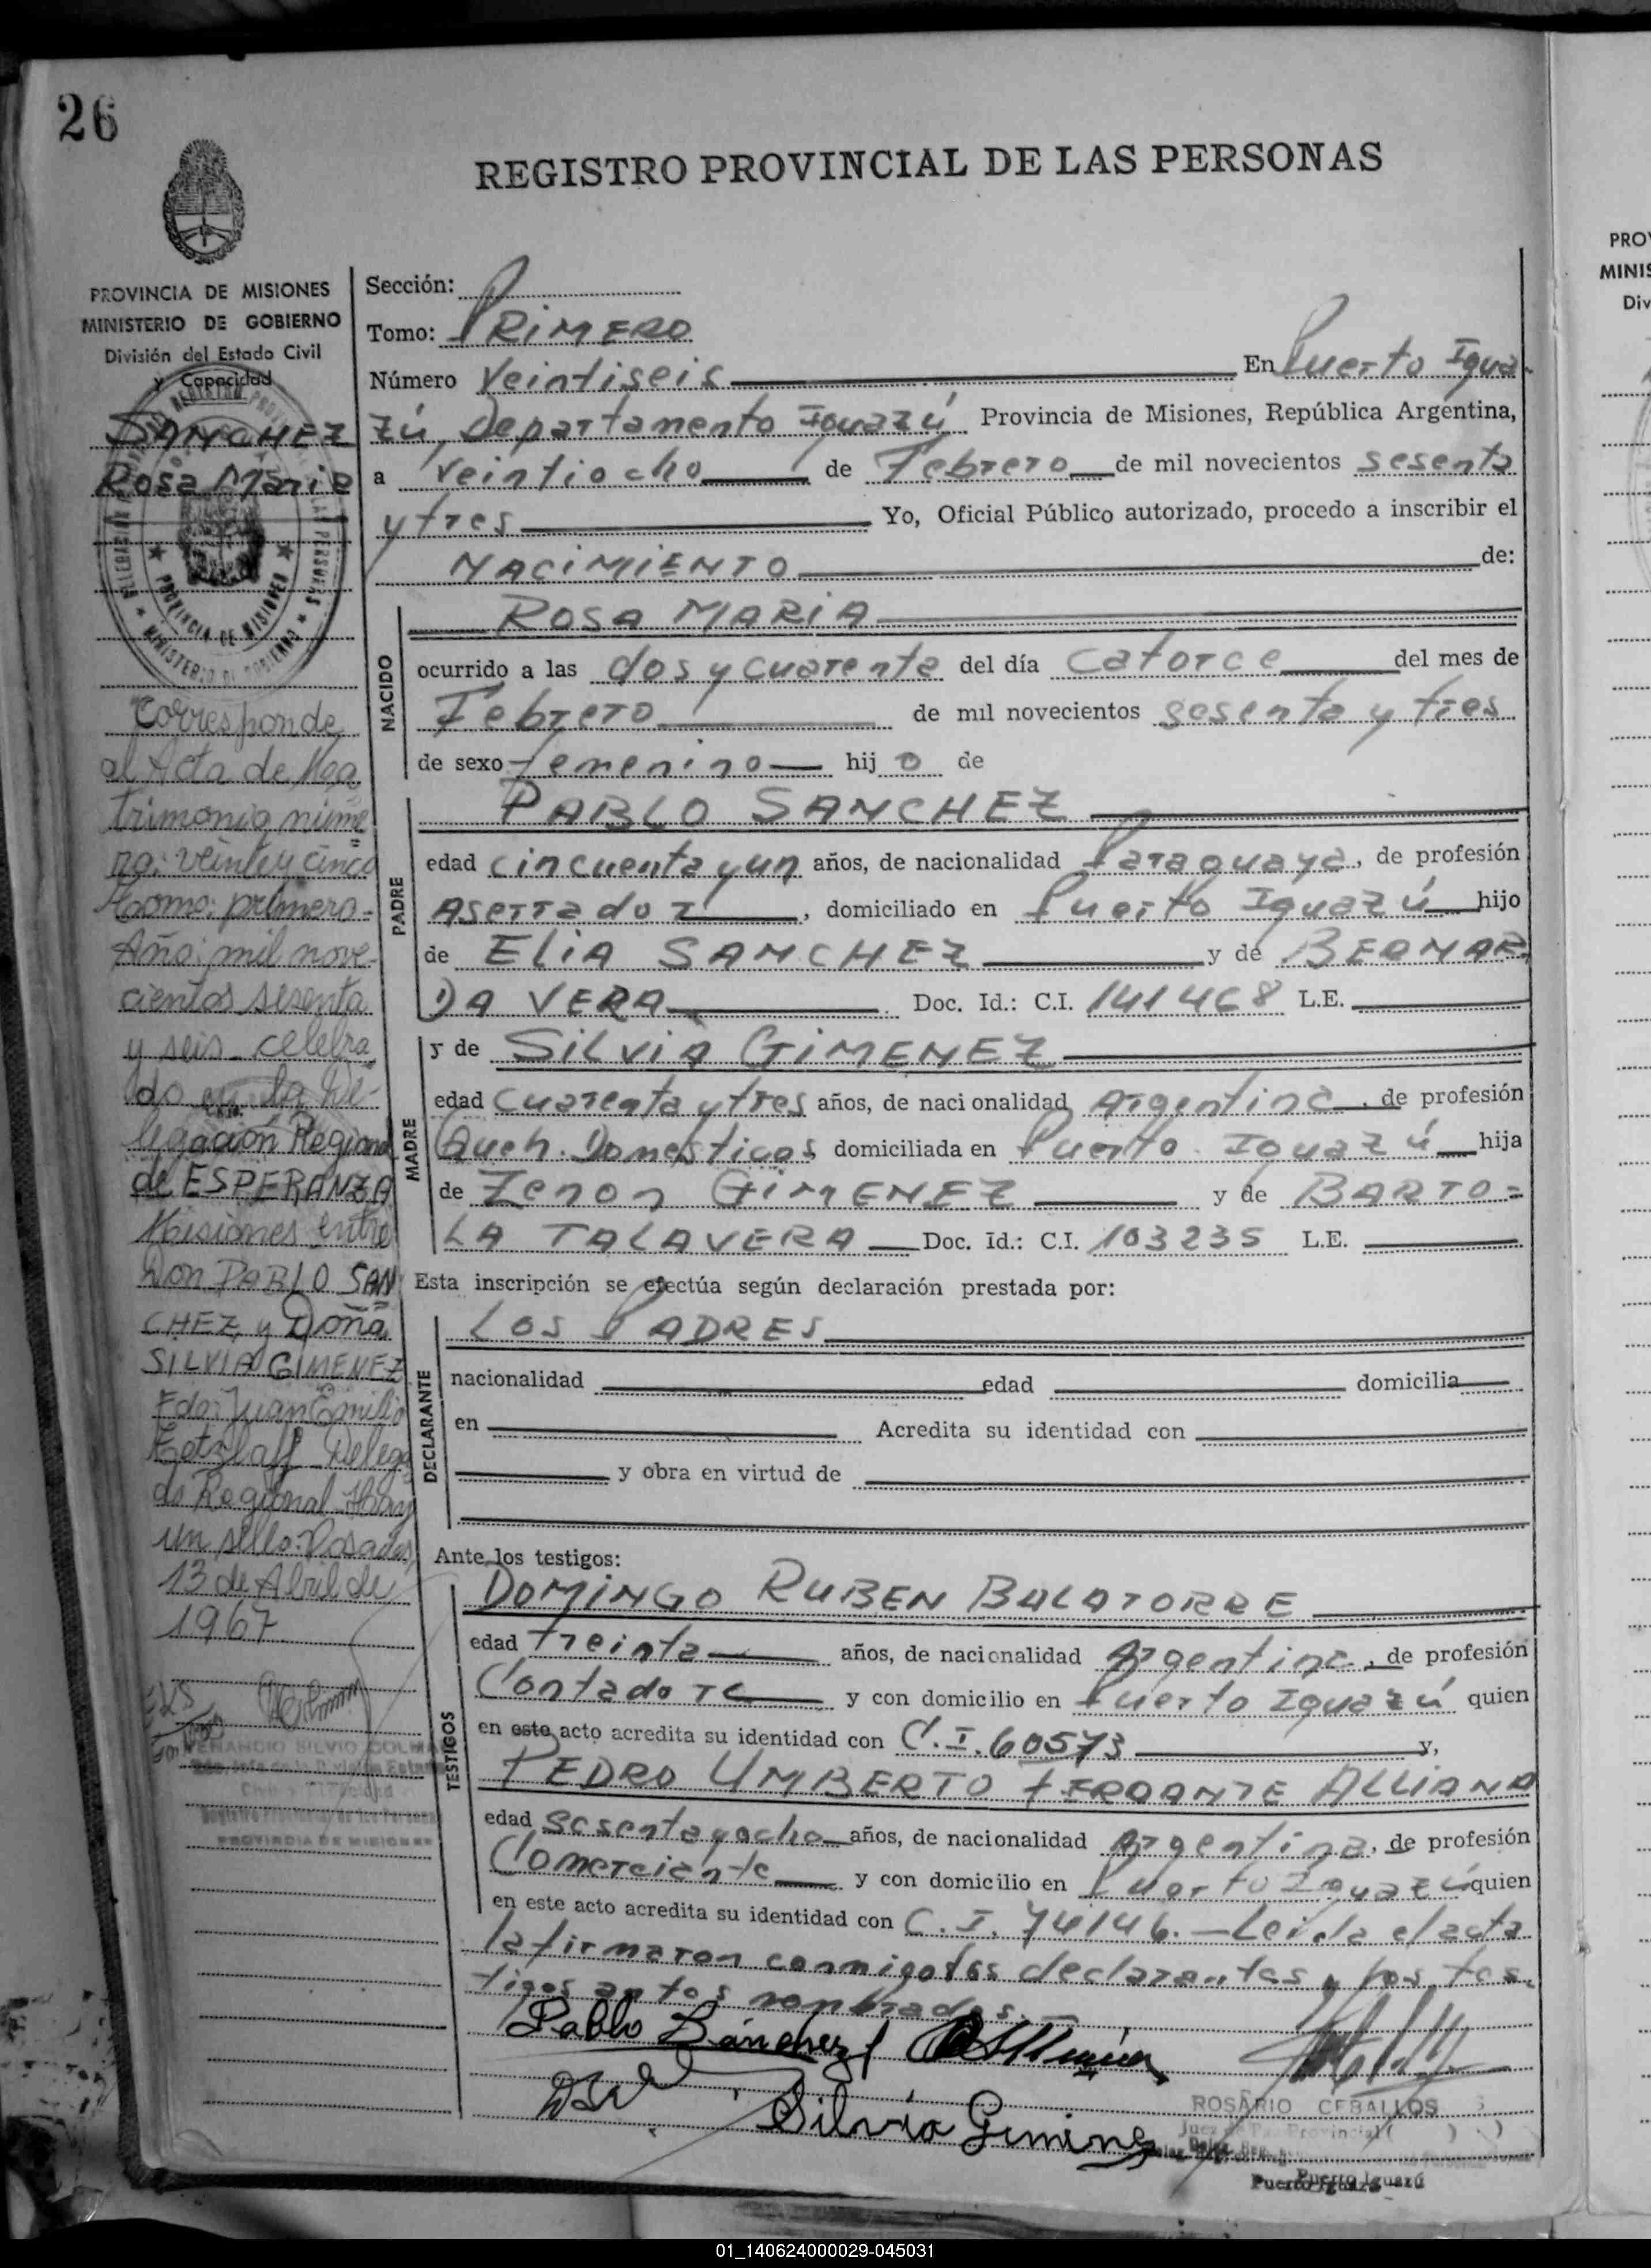 26
REGISTRO PROVINCIAL DE LAS PERSONAS
PROVINCIA DE MISIONES
MINISTERIO DE GOBIERNO
División del Estado Civil
y Capacidad
SANCHEZ
Rosa Maria
Corresponde
al Acta de Ma=
trimonio núme=
ro: veinte y cinco
Tomo: primero-
Año: mil nove-
cientos sesenta
y seis- celebra
do en la De-
legación Regional
de ESPERANZA
Misiones entre
Don PABLO SAN=
CHEZ y Doña
SILVIA GIMENEZ
Fdo: Juan Emilio
Delega
do Regional- Hay
un sello: Posadas,
13 de Abril de
1967
PROVINCIA DE MISIONES
Sección:
Tomo: PRIMERO
Número Veintiseis En Puerto Igua-
zú, Departamento Iguazú Provincia de Misiones, República Argentina,
a veintiocho de Febrero de mil novecientos sesenta
y tres Yo, Oficial Público autorizado, procedo a inscribir el
NACIMIENTO de:
NACIDO
ROSA MARIA
ocurrido a las dos y cuarenta del día catorce del mes de
Febrero de mil novecientos sesenta y tres
de sexo femenino hij o de
PADRE
PABLO SANCHEZ
edad cincuenta y un años, de nacionalidad Paraguaya, de profesión
Aserrador, domiciliado en Puerto Iguazú hijo
de ELIA SANCHEZ y de BERNAR
DA VERA Doc. Id.: C.I. 141468 L.E.
MADRE
y de SILVIA GIMENEZ
edad cuarenta y tres años, de naci onalidad Argentina, de profesión
Queh. Domesticos domiciliada en Puerto Iguazú hija
de Zenon GIMENEZ y de BARTO=
LA TALAVERA Doc. Id.: C.I. 103235 L.E.
Esta inscripción se efectúa según declaración prestada por:
DECLARANTE
LOS PADRES
nacionalidad edad domicilia
en Acredita su identidad con
y obra en virtud de
Ante los testigos:
TESTIGOS
DOMINGO RUBEN BALATORRE
edad treinta años, de nacionalidad Argentina, de profesión
Contador y con domicilio en Puerto Iguazú quien
en este acto acredita su identidad con C.I. 60573 y,
PEDRO UMBERTO FERDANTE ALLIANA
edad sesenta y ocho años, de nacionalidad Argentina, de profesión
Comerciante y con domicilio en Puerto Iguazú quien
en este acto acredita su identidad con C.I. 74146.- Leida el acta
la firmaron conmigo los declarantes y los tes-
tigos antes nombrados.-
Pablo Sánchez
Silvia Gimenez
ROSARIO CEBALLOS
Puerto Iguazú
01_140624000029-045031